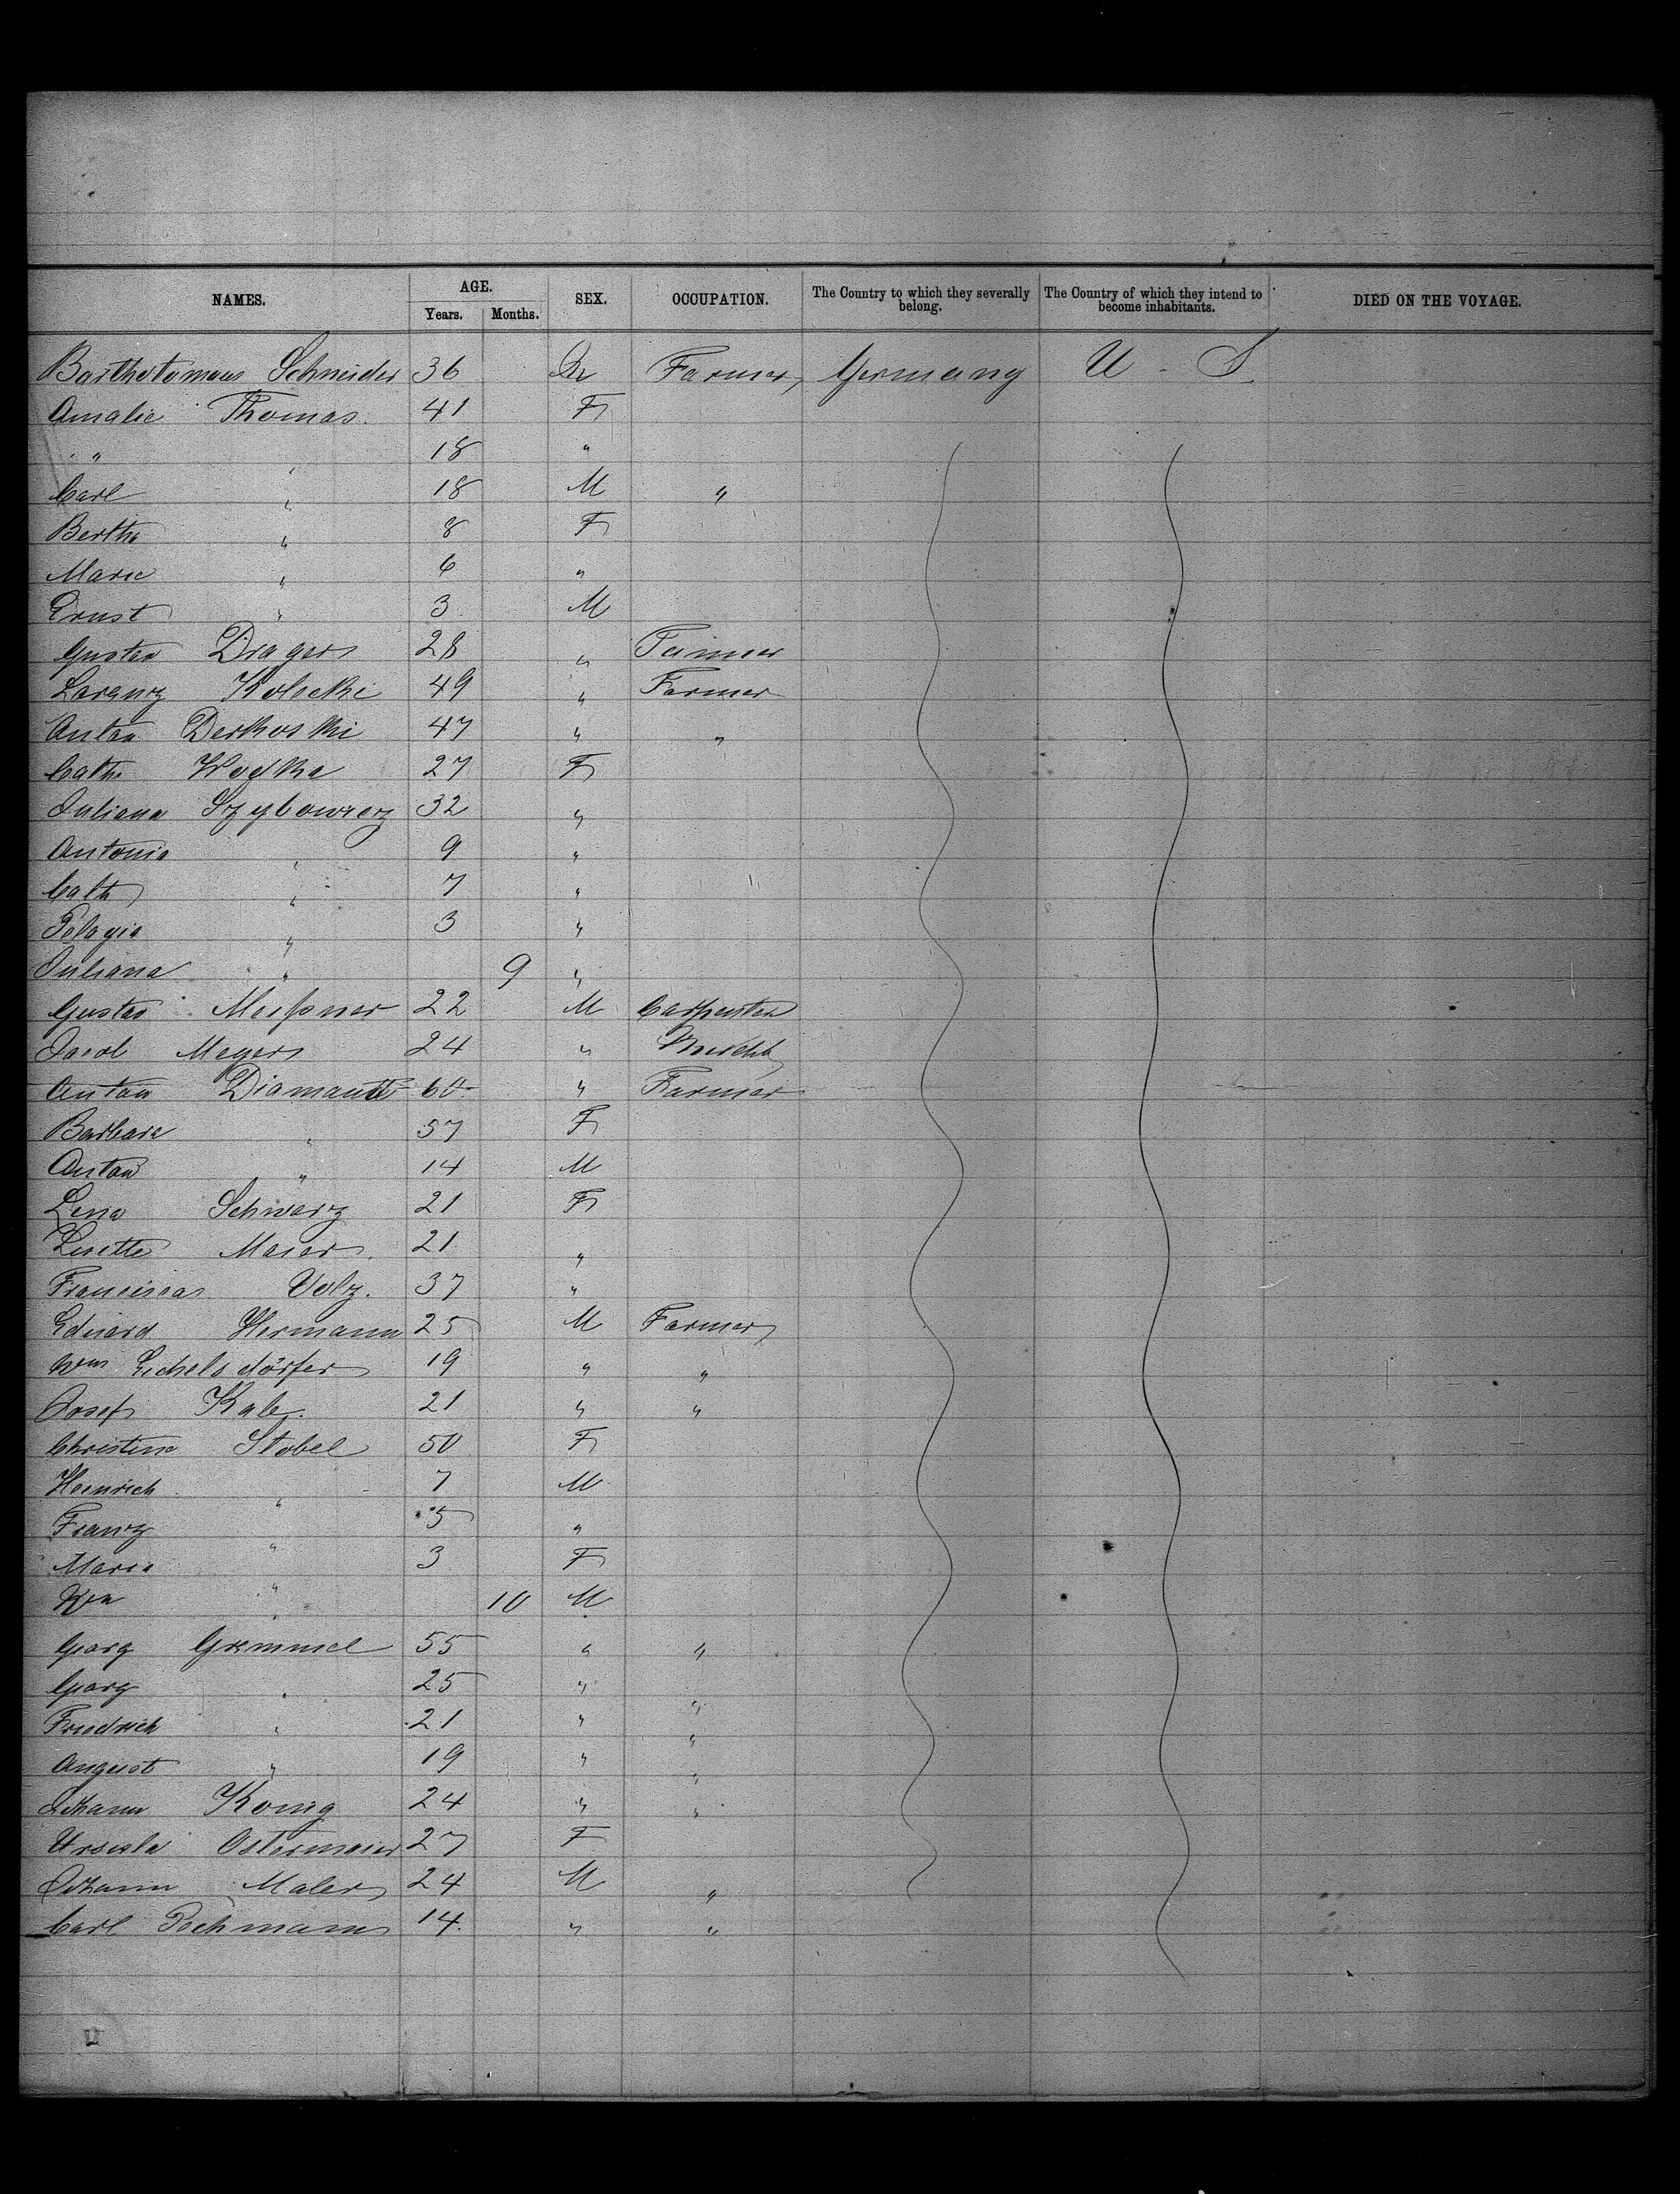 NAMES. AGE. SEX. OCCUPATION. The Country to which they severally belong. The Country of which they intend to become inhabitants. DIED ON THE VOYAGE.
Years. Months.
Bartholomaus Schneider 36 Farmer Germany U - S
Amalie Thomas. 41 F
" 18 "
Carl " 18 M "
Bertha " 8 F
Marie " 6 "
Ernst " 3 M
Gustav Dragers 28 "
Lorenz Kolecki 49 " Farmer
Anton Derkoski 47 " "
Cath. Wodka 27 F
Juliana Szybowicz 32 "
Antonia " 9 "
Cath " 7 "
Pelagia " 3 "
Juliana " 9 "
Gustav Meißner 22 M Carpenter
Jacob Meyers 24 "
Anton Diamantt 60 " Farmer
Barbara " 57 F
Anton " 14 M
Lena Schwarz 21 F
Lisette Maier. 21 "
Franciscas Volz. 37 "
Eduard Hermann 25 M Farmer
Wm Eichelsdörfer 19 " "
Josef Kale. 21 " "
Christine Stobel 50 F
Heinrich " 7 M
Franz " 5 "
Maria " 3 F
" 10 M
Georg Gremmel 55 " "
Georg " 25 " "
Friedrich " 21 " "
August " 19 " "
Johann Konig 24 " "
Ursula Ostermaier 27 F
Johann Maler 24 M "
Carl Pechmann 14. " "